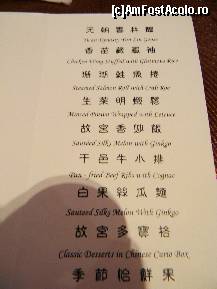 [c]AmFostAcolo.ro
元朝雲林鵝
香苗藏鳳袖
Chicken Wing Stuffed with Glutinous Rice
珊瑚鮭魚捲
Steamed Salmon Roll with Crab Roe
生菜明蝦鬆
Minced Prawn Wrapped with Lettuce
Sauteed Silky Melon with Ginkgo
干邑牛小排
Pan - fried Beef Ribs with Cognac
白果絲瓜麵
Sauteed Silky Melon With Ginkgo
故宮多寶格
Classic Desserts in Chinese Curio Box
季節鮮果